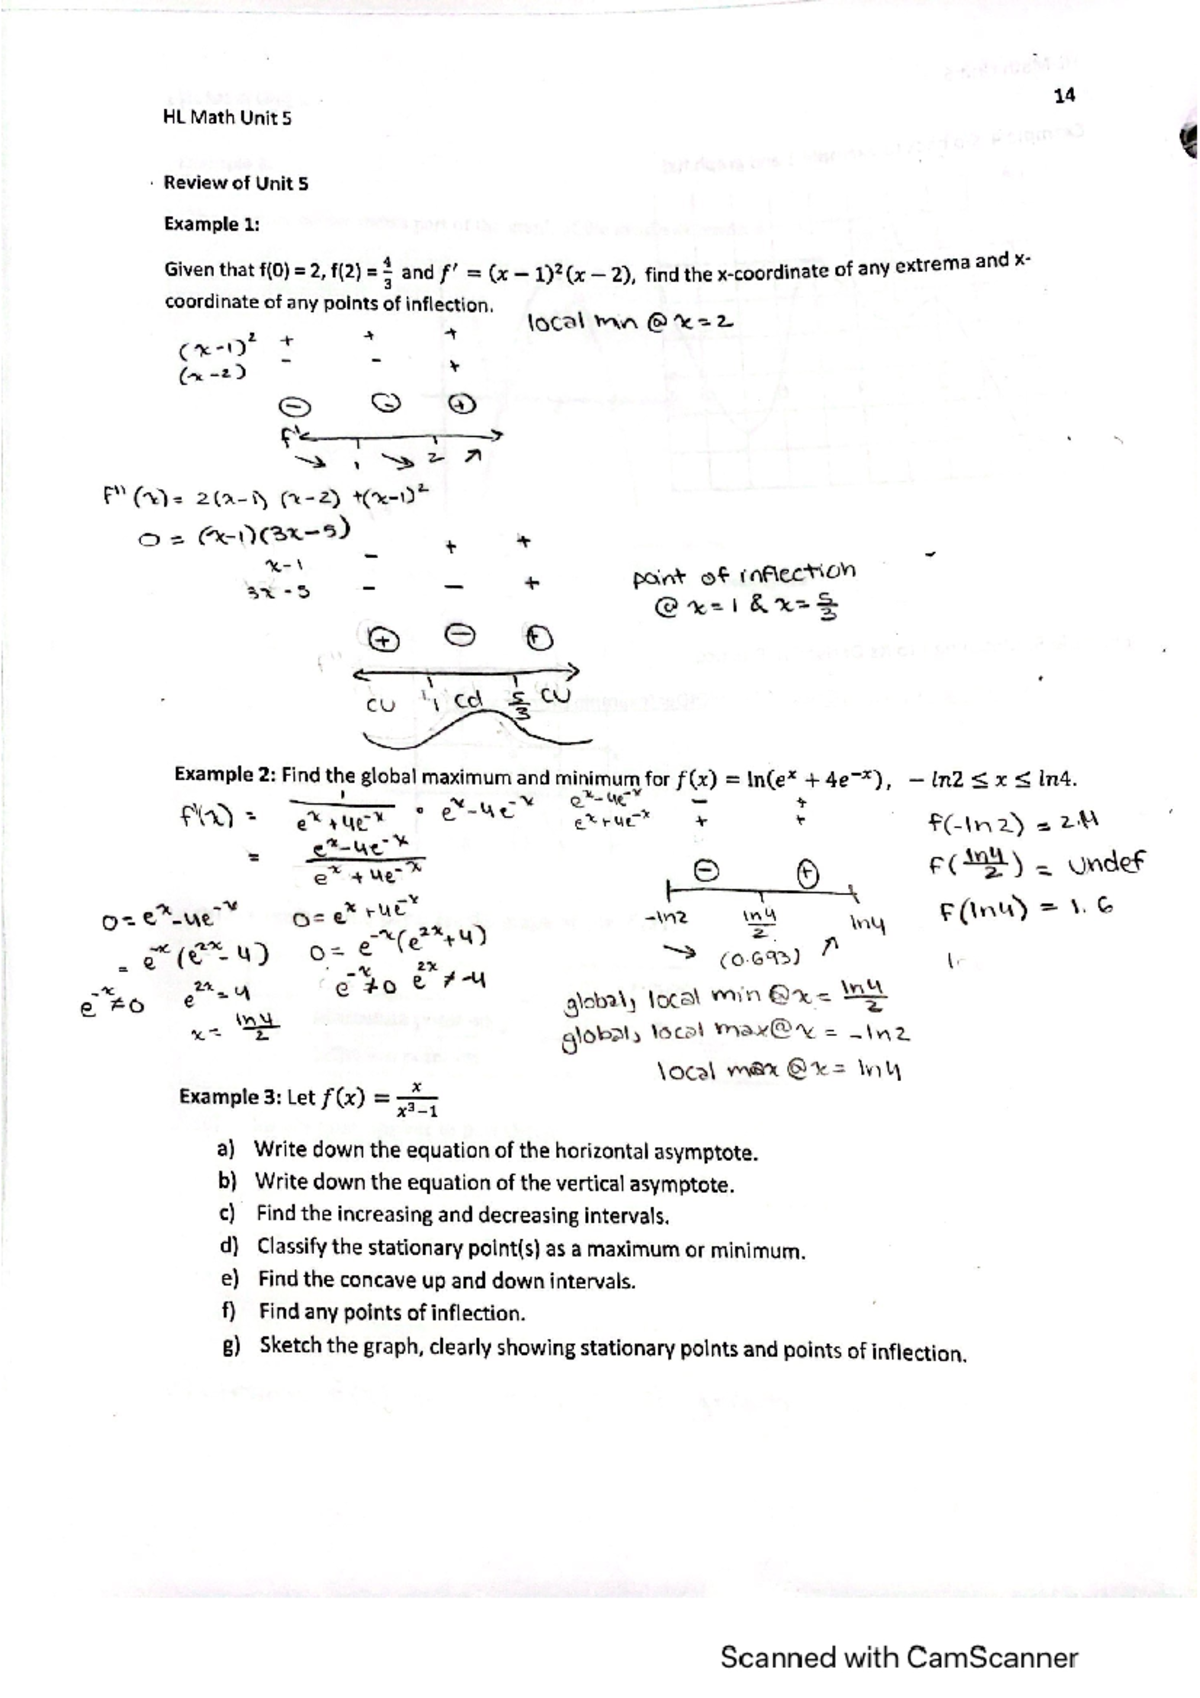 14
HL Math Unit 5
Review of Unit 5
Example 1:
Given that f(0) = 2, f(2) = 4/3 and f' = (x − 1)²(x − 2), find the x-coordinate of any extrema and x-
coordinate of any points of inflection.
local min @ x = 2
(x-1)² + + +
(x-2) − − +
⊖ ⊖ ⊕
f'
1 2
F''(x) = 2(x-1)(x-2) + (x-1)²
0 = (x-1)(3x-5)
x-1 − + +
3x-5 − − +
point of inflection
@ x = 1 & x = 5/3
⊕ ⊖ ⊕
CU 1 Cd 5/3 CU
Example 2: Find the global maximum and minimum for f(x) = ln(eˣ + 4e⁻ˣ), − ln2 ≤ x ≤ ln4.
f'(x) = 1/(eˣ + 4e⁻ˣ) • eˣ-4e⁻ˣ
= (eˣ-4e⁻ˣ)/(eˣ + 4e⁻ˣ)
eˣ-4e⁻ˣ − +
eˣ+4e⁻ˣ + +
⊖ ⊕
-ln2 ln4/2 ln4
→ (0.693) ↗
f(-ln2) = 2.14
f(ln4/2) = undef
f(ln4) = 1.6
0 = eˣ-4e⁻ˣ 0 = eˣ+4e⁻ˣ
= e⁻ˣ(e²ˣ-4) 0 = e⁻ˣ(e²ˣ+4)
e⁻ˣ≠0 e²ˣ=4 e⁻ˣ≠0 e²ˣ≠-4
x = ln4/2
global, local min @ x = ln4/2
global, local max @ x = -ln2
local max @ x = ln4
Example 3: Let f(x) = x/(x³−1)
a) Write down the equation of the horizontal asymptote.
b) Write down the equation of the vertical asymptote.
c) Find the increasing and decreasing intervals.
d) Classify the stationary point(s) as a maximum or minimum.
e) Find the concave up and down intervals.
f) Find any points of inflection.
g) Sketch the graph, clearly showing stationary points and points of inflection.
Scanned with CamScanner